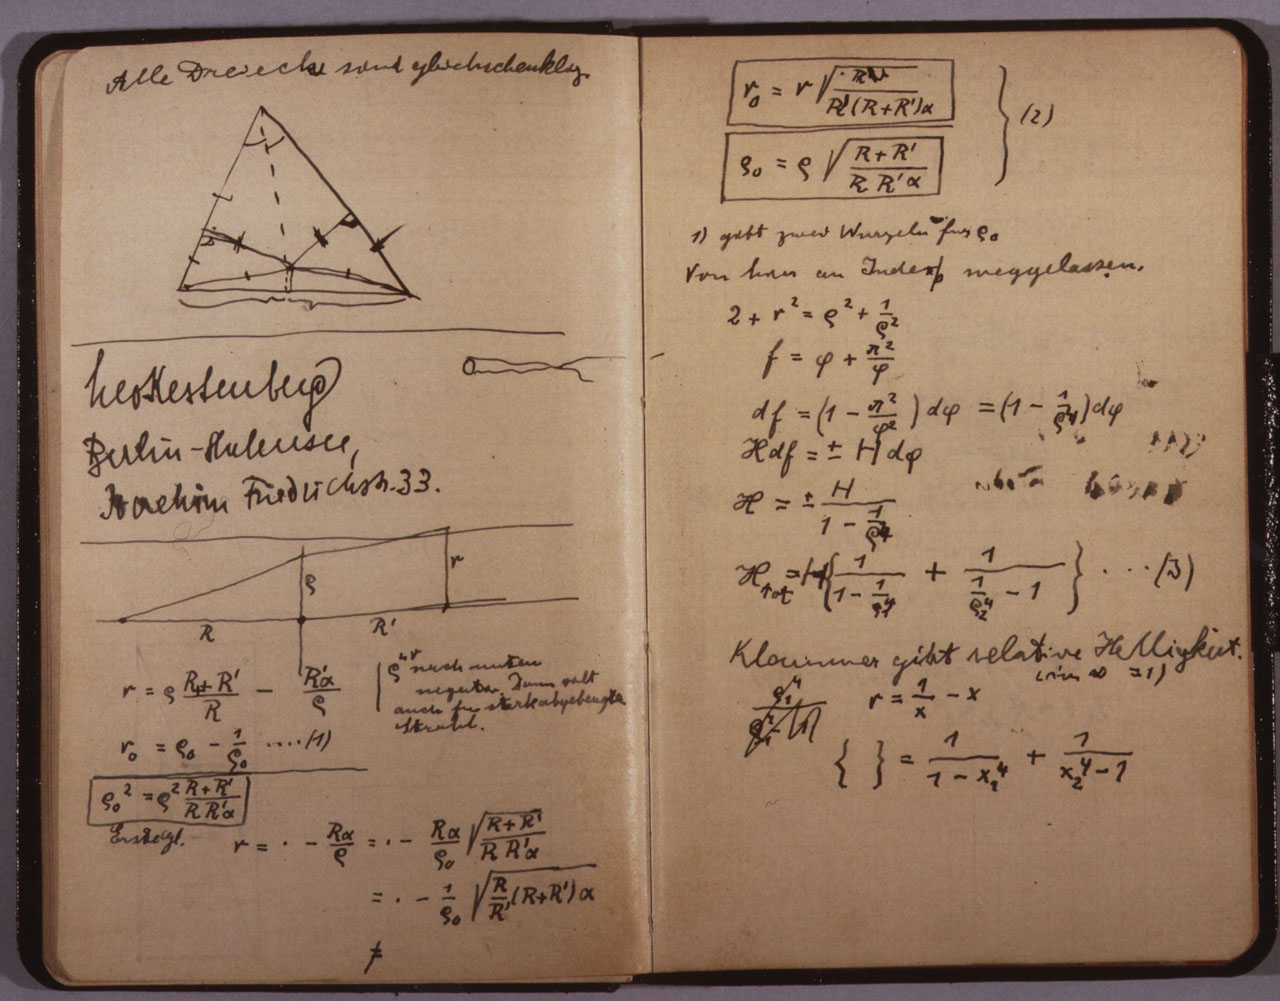 Alle Dreiecke sind gleichschenklig.
Leo Kestenberg
Berlin-Halensee,
Joachim Friedrichstr. 33.
ρ
r
R
R'
r = ρ (R+R')/R − Rα/ρ
ρ nach unten
negativ. Dann gilt
auch für stark abgebeugte
Strahl.
r₀ = ρ₀ − 1/ρ₀ ....(1)
ρ₀² = ρ² (R+R')/(R R'α)
r = · − Rα/ρ = · − Rα/ρ₀ √((R+R')/(R R'α))
= · − 1/ρ₀ √(R/R' (R+R')α)
r₀ = r √(R/(R'(R+R')α))
(2)
ρ₀ = ρ √((R+R')/(R R'α))
1) gibt zwei Wurzeln für ρ₀
Von hier an Index weggelassen.
2 + r² = ρ² + 1/ρ²
f = φ + π²/φ
df = (1 − π²/φ²) dφ = (1 − 1/ρ⁴) dφ
H df = ± H dφ
H = ± H/(1 − 1/ρ⁴)
H_tot = H {1/(1 − 1/ρ₁⁴) + 1/(1/ρ₂⁴ − 1)} ... (3)
Klammer gibt relative Helligkeit.
(in ∞ = 1)
r = 1/x − x
{ } = 1/(1 − x₁⁴) + 1/(x₂⁴ − 1)